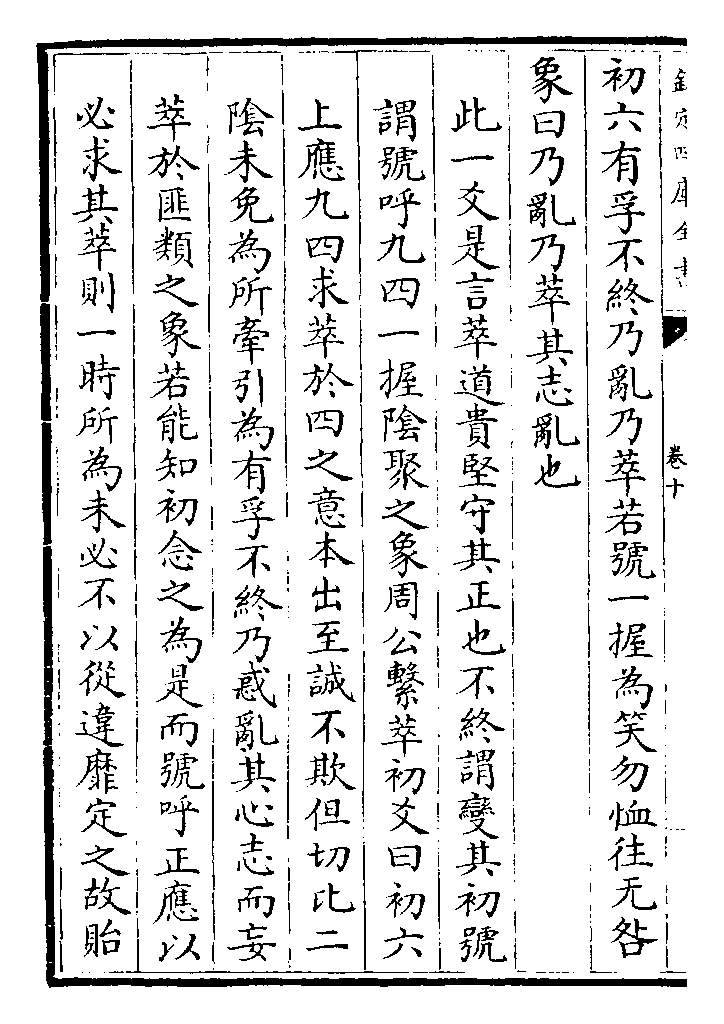 欽定四庫全書
卷十
初六有孚不終乃亂乃萃若號一握為笑勿恤往无咎
象曰乃亂乃萃其志亂也
此一爻是言萃道貴堅守其正也不終謂變其初號
謂號呼九四一握陰聚之象周公繫萃初爻曰初六
上應九四求萃於四之意本出至誠不欺但切比二
陰未免為所牽引為有孚不終乃惑亂其心志而妄
萃於匪類之象若能知初念之為是而號呼正應以
必求其萃則一時所為未必不以從違靡定之故貽